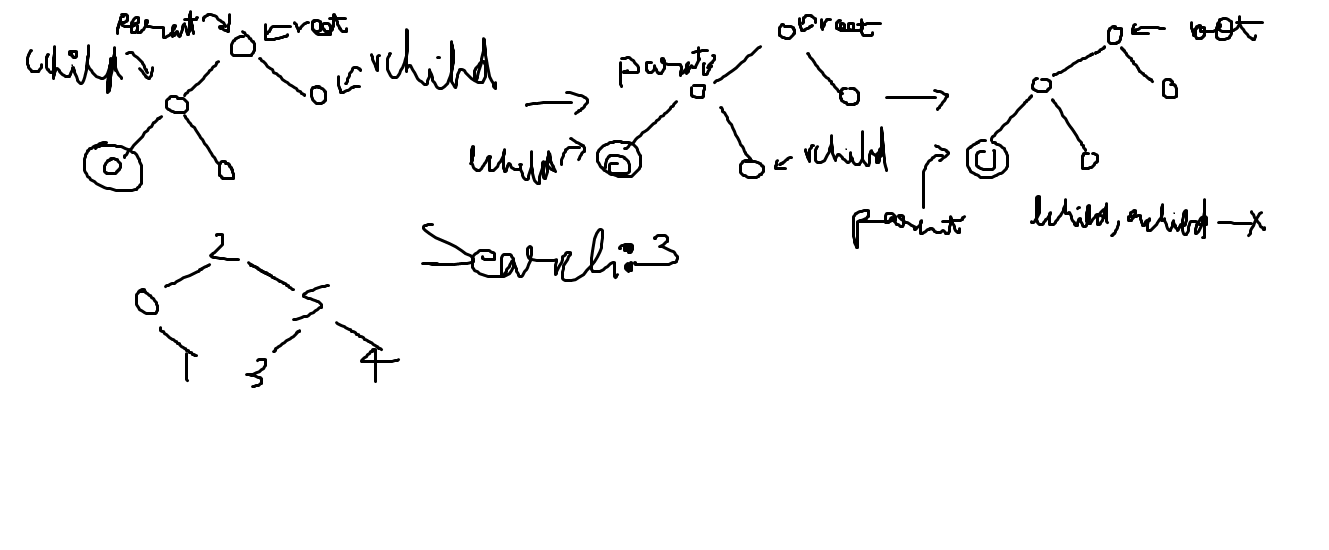 parent root
child rchild
root
parent
lchild rchild
root
parent lchild, rchild → x
Search: 3
2
0 5
1 3 4